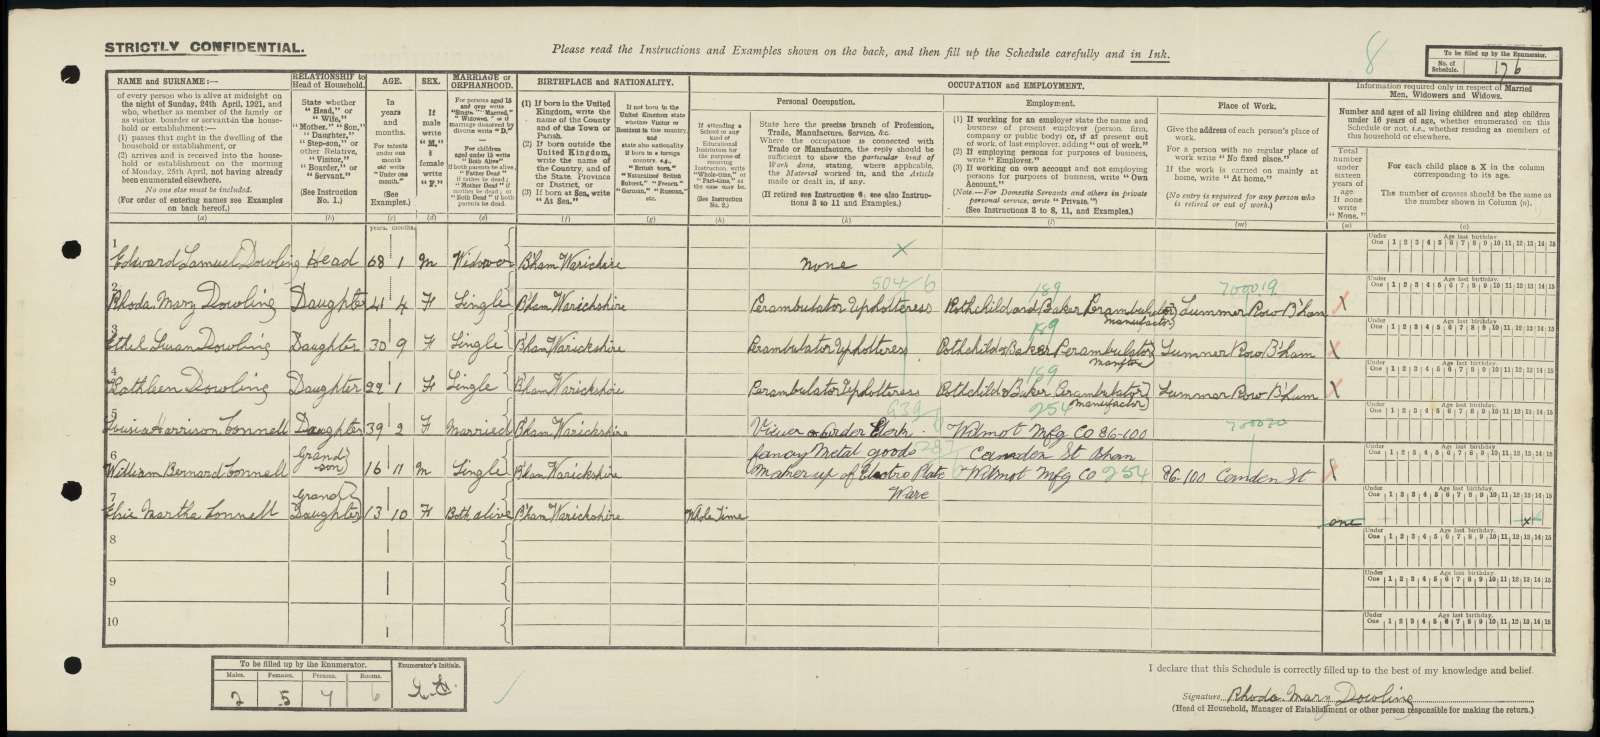 STRICTLY CONFIDENTIAL.
Please read the Instructions and Examples shown on the back, and then fill up the Schedule carefully and in Ink.
8
To be filled up by the Enumerator.
No. of Schedule. 176
NAME and SURNAME:—
of every person who is alive at midnight on
the night of Sunday, 24th April, 1921, and
who, whether as member of the family or
as visitor, boarder or servant in the house-
hold or establishment:—
(1) passes that night in the dwelling of the
household or establishment, or
(2) arrives and is received into the house-
hold or establishment on the morning
of Monday, 25th April, not having already
been enumerated elsewhere.
No one else must be included.
(For order of entering names see Examples
on back hereof.)
(a)
RELATIONSHIP to
Head of Household.
State whether
"Head," or
"Wife,"
"Mother," "Son,"
"Daughter,"
"Step-son," or
other Relative,
"Visitor,"
"Boarder," or
"Servant."
(See Instruction
No. 1.)
(b)
AGE.
In
years
and
months.
For infants
under one
month
write
"Under one
month."
(See
Examples.)
(c)
years. months.
SEX.
If
male
write
"M,"
if
female
write
"F."
(d)
MARRIAGE or
ORPHANHOOD.
For persons aged 15
and over write
"Single," "Married,"
"Widowed," or if
marriage dissolved by
divorce write "D."
For children
aged under 15 write
"Both Alive"
if both parents be alive,
"Father Dead"
if father be dead;
"Mother Dead" if
mother be dead; or
"Both Dead" if both
parents be dead.
(e)
BIRTHPLACE and NATIONALITY.
(1) If born in the United
Kingdom, write the
name of the County
and of the Town or
Parish.
(2) If born outside the
United Kingdom,
write the name of
the Country, and of
the State, Province
or District, or
(3) If born at Sea, write
"At Sea."
(f)
(g)
OCCUPATION and EMPLOYMENT.
If attending a
School or any
kind of
Educational
Institution for
the purpose of
receiving
Instruction, write
"Whole-time," or
"Part-time," as
the case may be.
(See Instruction
No. 2.)
(h)
Personal Occupation.
State here the precise branch of Profession,
Trade, Manufacture, Service, &c.
Where the occupation is connected with
Trade or Manufacture, the reply should be
sufficient to show the particular kind of
Work done, stating, where applicable,
the Material worked in, and the Article
made or dealt in, if any.
(If retired see Instruction 6, see also Instruc-
tions 3 to 11 and Examples.)
(k)
Employment.
(1) If working for an employer state the name and
business of present employer (person, firm,
company or public body) or, if at present out
of work, of last employer, adding "out of work."
(2) If employing persons for purposes of business,
write "Employer."
(3) If working on own account and not employing
persons for purposes of business, write "Own
Account."
(Note.—For Domestic Servants and others in private
personal service, write "Private.")
(See Instructions 3 to 8, 11, and Examples.)
(l)
Place of Work.
Give the address of each person's place of
work.
For a person with no regular place of
work write "No fixed place."
If the work is carried on mainly at
home, write "At home."
(No entry is required for any person who
is retired or out of work.)
(m)
Information required only in respect of Married
Men, Widowers and Widows.
Number and ages of all living children and step children
under 16 years of age, whether enumerated on this
Schedule or not, i.e., whether residing as members of
this household or elsewhere.
Total
number
under
sixteen
years of
age.
If none
write
"None."
(n)
For each child place a X in the column
corresponding to its age.
The number of crosses should be the same as
the number shown in Column (n).
(o)
Under One Age last birthday. 1 2 3 4 5 6 7 8 9 10 11 12 13 14 15
1 Edward Samuel Dowling Head 68 1 M Widower B'ham Warickshire none X
504/6 189 700019
2 Rhoda Mary Dowling Daughter 41 4 F Single B'ham Warickshire Perambulator Upholteress Rothchild and Baker Perambulator manufactor Summer Row B'ham X
189
3 Ethel Susan Dowling Daughter 30 9 F Single B'ham Warickshire Perambulator Upholteress Rothchild & Baker Perambulator Summer Row B'ham X
189
4 Kathleen Dowling Daughter 22 1 F Single B'ham Warickshire Perambulator Upholtress Rothchild & Baker Perambulator manufactor Summer Row B'ham X
939 254 700020
5 Louisa Harrison Connell Daughter 39 2 F Married B'ham Warickshire Viewer Order Clerk Wilmot Mfg Co 86-100
fancy Metal goods Camden St Bham
6 William Bernard Connell Grand son 16 11 M Single B'ham Warickshire Maker up of Electro Plate Ware Wilmot Mfg Co 254 86-100 Camden St X
7 Elsie Martha Connell Grand Daughter 13 10 F Both alive B'ham Warickshire Whole Time one X
8
9
10
To be filled up by the Enumerator.
Males. Females. Persons. Rooms.
2 5 7 6
Enumerator's Initials.
I declare that this Schedule is correctly filled up to the best of my knowledge and belief.
Signature Rhoda Mary Dowling
(Head of Household, Manager of Establishment or other person responsible for making the return.)